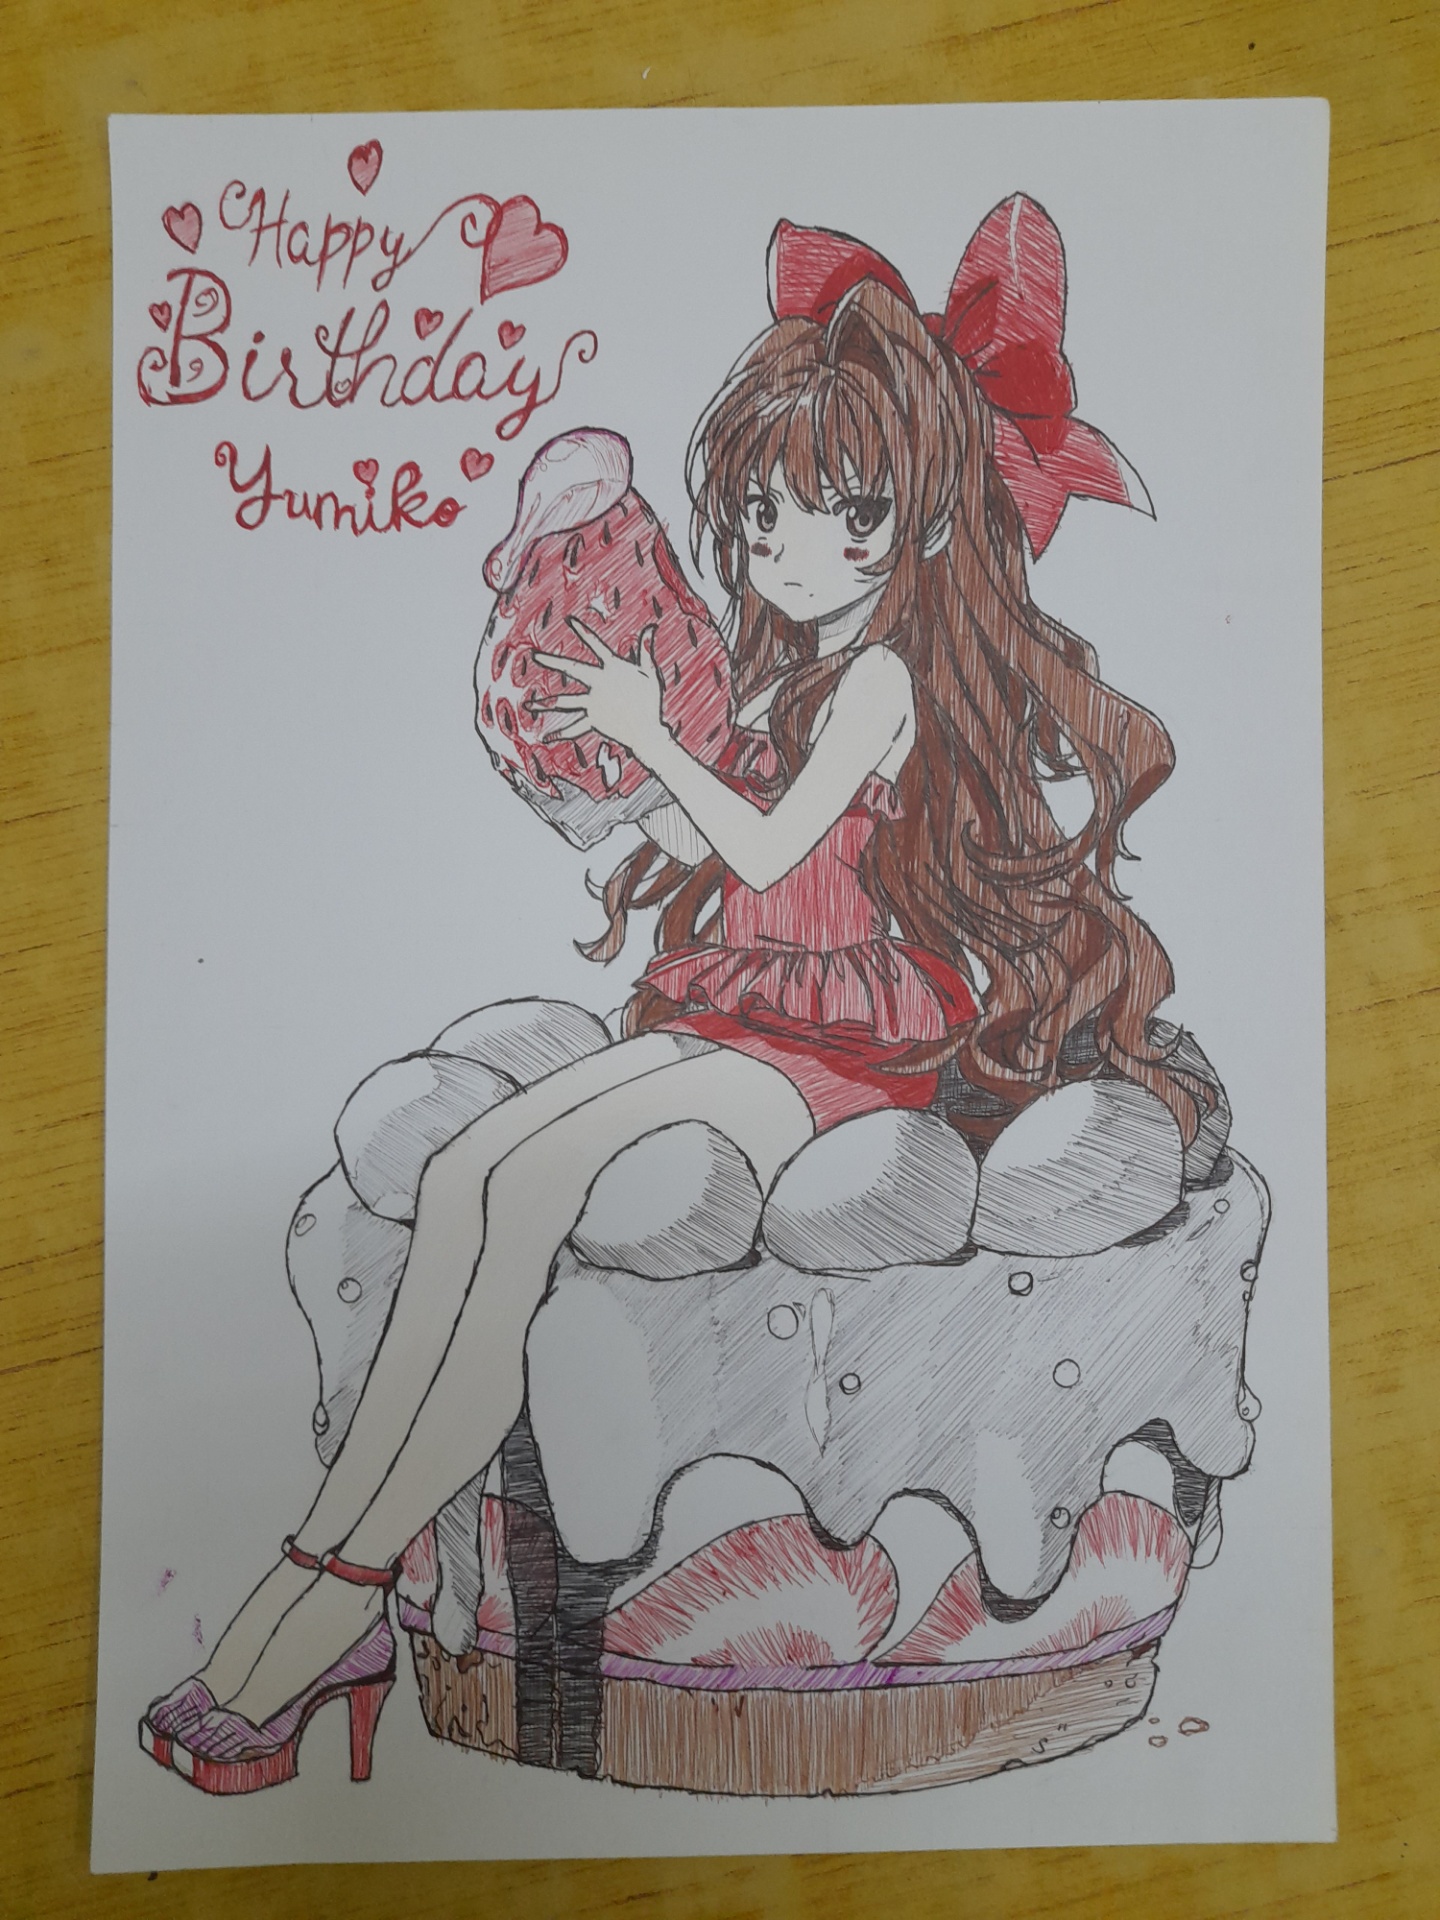 Happy
Birthday
Yumiko